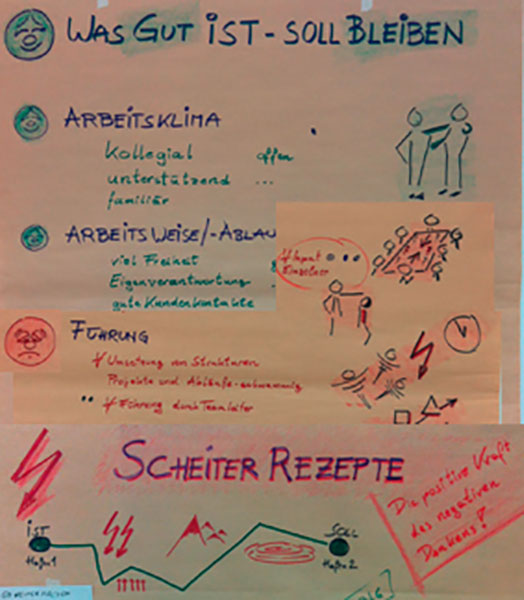 WAS GUT IST - SOLL BLEIBEN
ARBEITSKLIMA
Kollegial offen
unterstützend ...
familiär
ARBEITSWEISE/-ABLAU
viel Freiheit
Eigenverantwortung
gute Kundenkontakte
Input
Einzelner
FÜHRUNG
Umsetzung von Strukturen
Projekte und Abläufe
Führung durch Teamleiter
SCHEITER REZEPTE
IST
SOLL
Die positive Kraft
des negativen
Denkens!